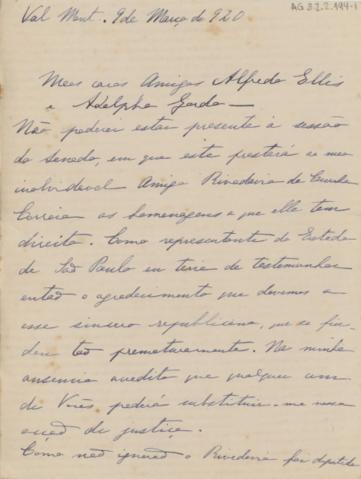 AG 3.2.2.194-1
Val Mont. 9 de Março de 920
Meus caros Amigos Alfredo Ellis
e Adolpho Gordo —
Não poderei estar presente à sessão
do senado, em que este prestará ao meu
inolvidavel Amigo Rivadavia da Cunha
Corrêia as homenagens a que elle tem
direito. Como representante do Estado
de São Paulo eu teria de testemunhar
então o agradecimento que devemos a
esse sincero republicano, que se fin-
dou tão prematuramente. Na minha
ausencia acredito que qualquer um
de Vocês poderá substituir-me nessa
acção de justiça.
Como não ignorão o Rivadavia foi deputado